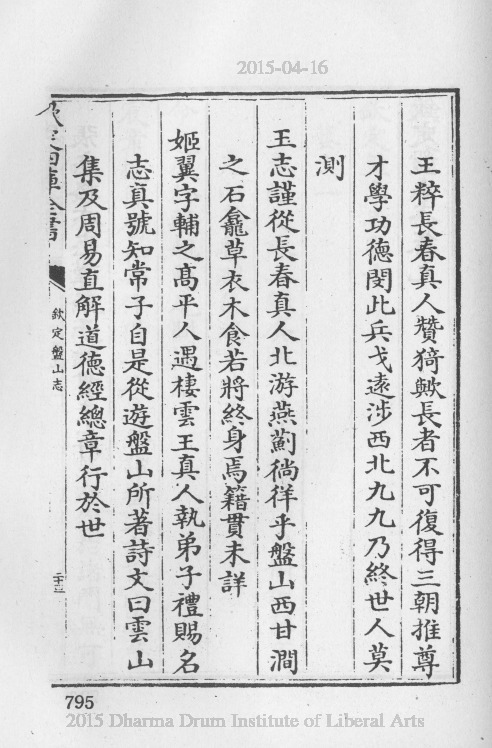 2015-04-16
王粹長春真人贊猗歟長者不可復得三朝推尊
才學功德閔此兵戈遠涉西北九九乃終世人莫
測
王志謹從長春真人北游燕薊徜徉乎盤山西甘澗
之石龕草衣木食若將終身焉籍貫未詳
姬翼字輔之髙平人遇棲雲王真人執弟子禮賜名
志真號知常子自是從遊盤山所著詩文曰雲山
集及周易直解道德經總章行於世
欽定四庫全書
欽定盤山志
二十三
795
2015 Dharma Drum Institute of Liberal Arts